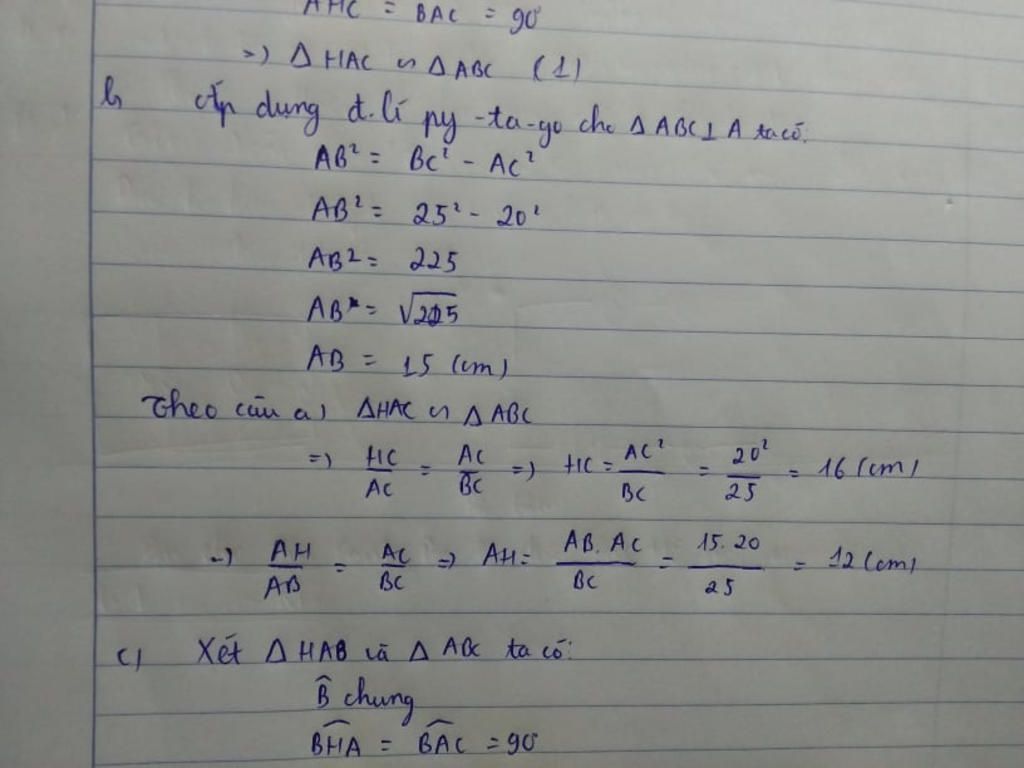 AHC = BAC = 90°
=) Δ HAC ∽ Δ ABC (1)
b, Áp dụng đ.lí py-ta-go cho Δ ABC ⊥ A ta có:
AB² = BC² - AC²
AB² = 25² - 20²
AB² = 225
AB = √225
AB = 15 (cm)
Theo câu a) ΔHAC ∽ Δ ABC
=) HC/AC = AC/BC =) HC = AC²/BC = 20²/25 = 16 (cm)
=) AH/AB = AC/BC => AH = AB.AC/BC = 15.20/25 = 12 (cm)
c) Xét Δ HAB và Δ ABC ta có:
B̂ chung
BHA = BAC = 90°